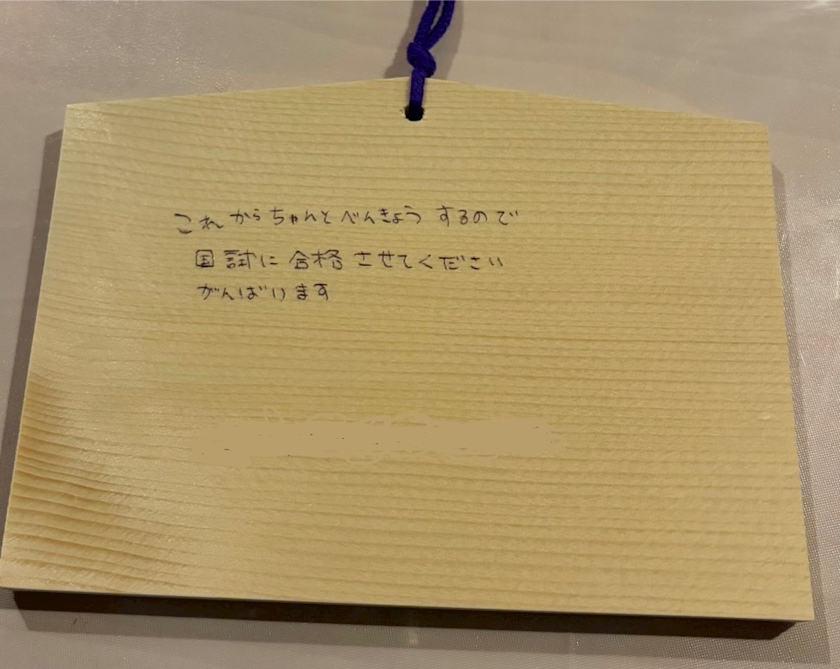 これからちゃんとべんきょうするので
国試に合格させてください
がんばります